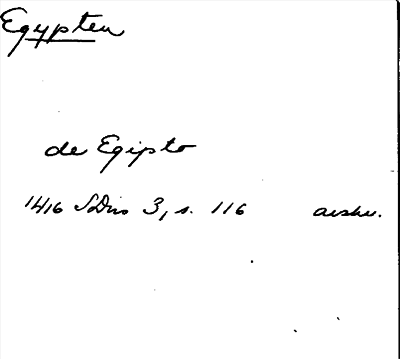 Egypten
de Egipto
1416 SDns 3, s. 116 avskr.